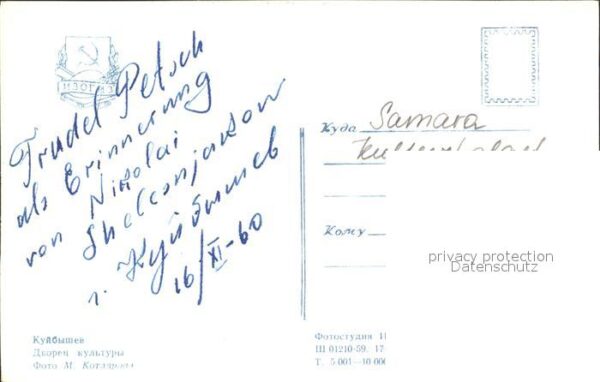 ИЗОГИЗ
Trudel Petsch
als Erinnerung
von Nikolai
г. Куйбышев
16/XI-60
Куйбышев
Дворец культуры
Фото М. Котлярова
Куда Samara
Кому
privacy protection
Datenschutz
Фотостудия И
Ш 01210-59. 17
Т. 5.001-10 000